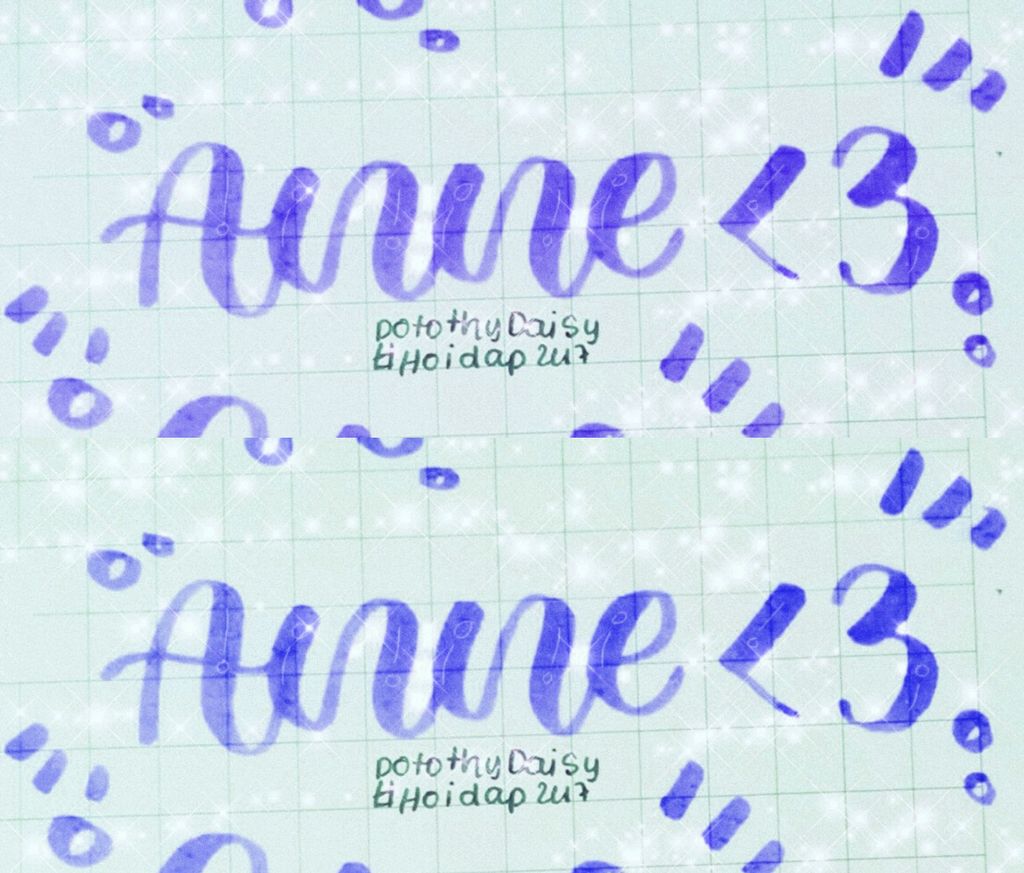 Anne <3
DotothyDaisy
tiHoidap 247
Anne <3
DotothyDaisy
tiHoidap 247